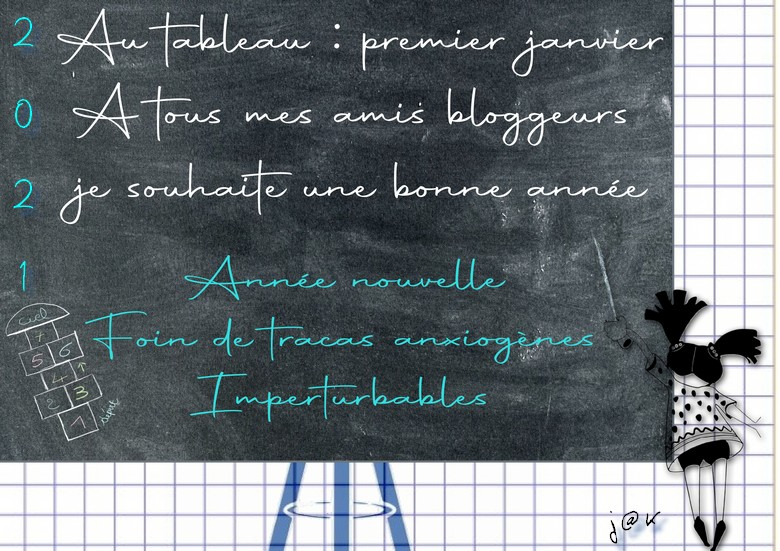 2 Au tableau : premier janvier
0 A tous mes amis bloggeurs
2 je souhaite une bonne année
1 Année nouvelle
Foin de tracas anxiogènes
Imperturbables
ciel
7
5 6
4
2 3
1
départ
j@k